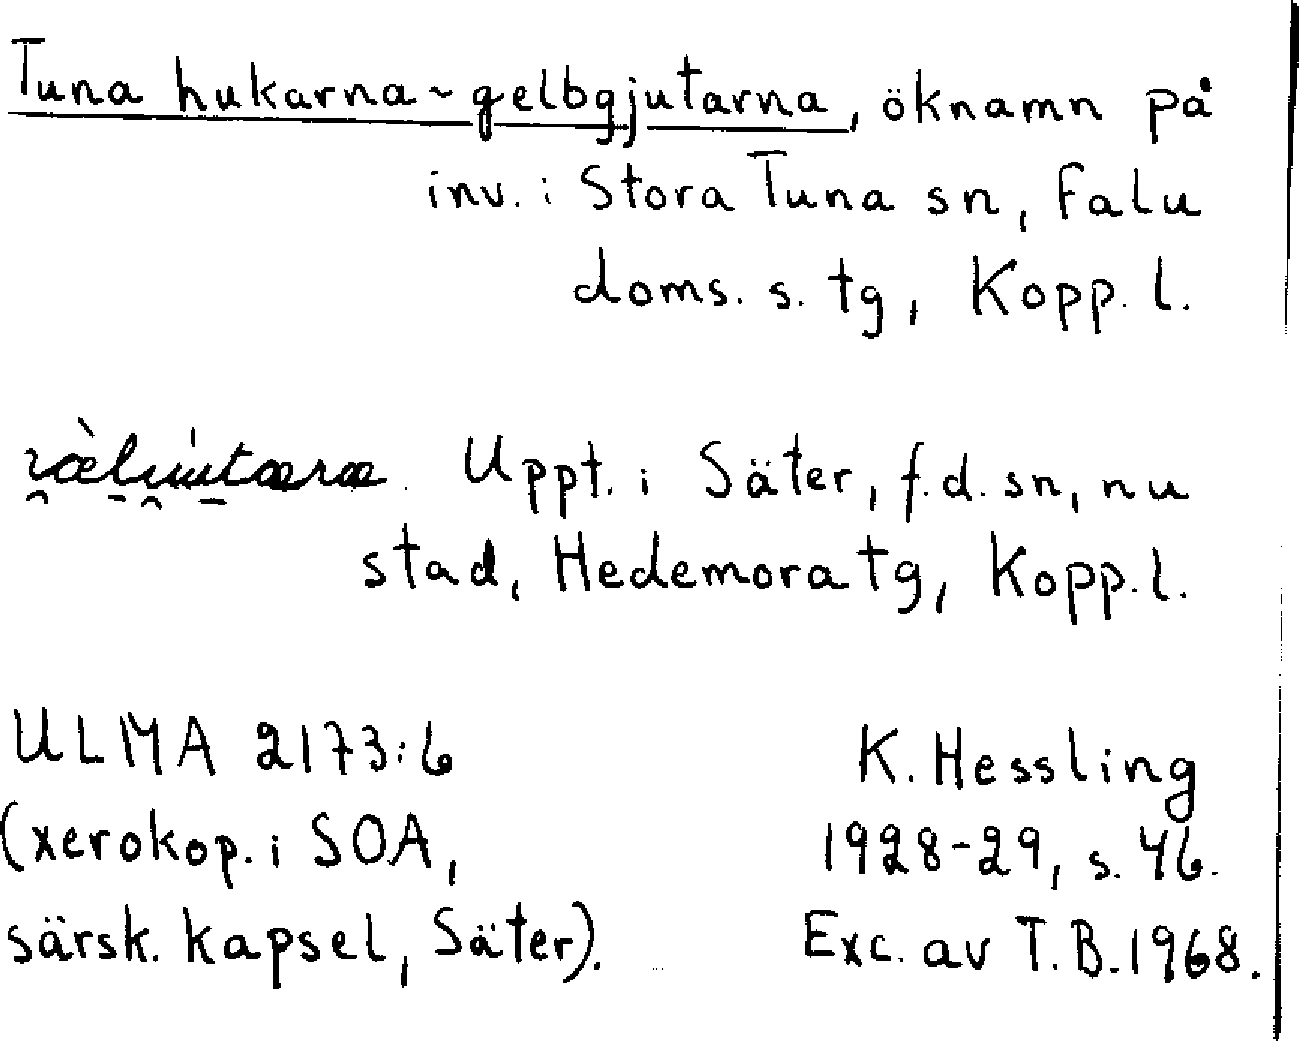 Tuna hukarna ~ gelbgjutarna, öknamn på
inv. i Stora Tuna sn, Falu
doms. s. tg, Kopp. l.
Uppt. i Säter, f.d. sn, nu
stad, Hedemora tg, Kopp. l.
ULMA 2173:6
(xerokop. i SOA,
särsk. kapsel, Säter).
K. Hessling
1928-29, s. 46.
Exc. av T.B. 1968.